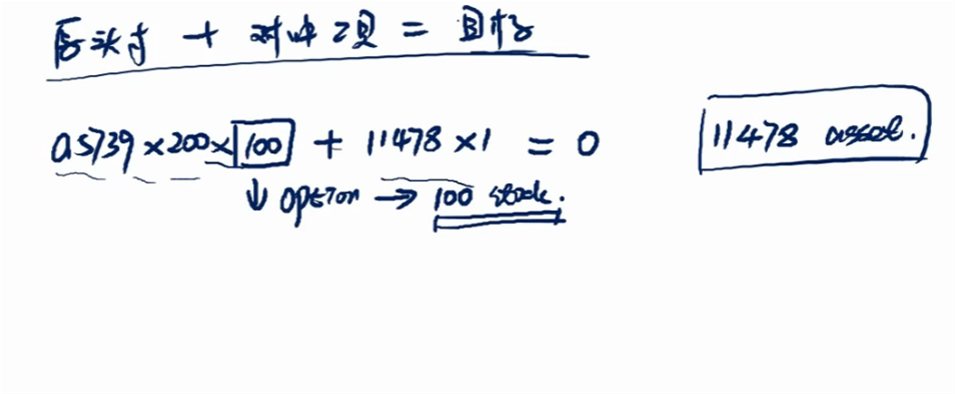 原头寸 + 对冲工具 = 目标
0.5739 × 200 × 100 + 11478 × 1 = 0
11478 asset.
↓ option → 100 stock.